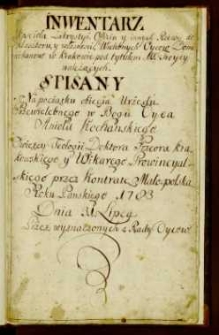 INWENTARZ
Kościoła Zakrystyi Ołtarzy y innych Rzeczy do
Klasztoru y własności Wielebnych Oyców Domi
nikanow w Krakowie pod tytułem SS. Troycy
należących.
SPISANY
Na początku obięcia Urzędu
Przewielebnego w Bogu Oyca
Anioła Kochańskiego
Swiętey Teologii Doktora Przeora Kra
kowskiego y Wikarego Prowincyal-
skiego przez Kontratę Małopolską
Roku Pańskiego 1783
Dnia Lipca
Przez wyznaczonych z Rady Oyców.